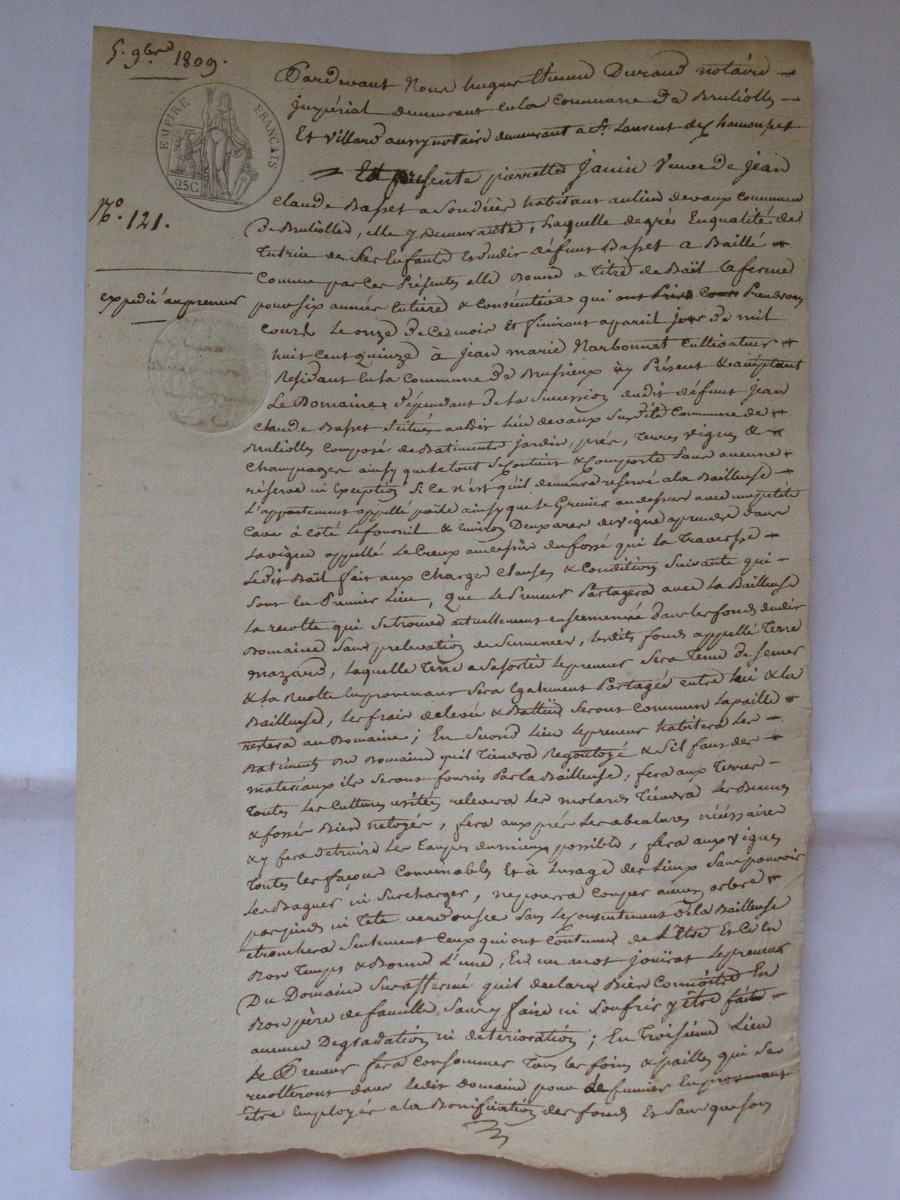 5. 9bre 1809.
EMPIRE FRANÇAIS
25C
No. 121.
expedié au preneur
Pardevant Nous hugues Etienne Durand notaire
Impérial demeurant en la Commune de Brullioles
Et Villard aussy notaire demeurant a St. Laurent de Chamousset
Est présente pierrette Janin Veuve de Jean
Claude Basset a Son décès habitant au lieu devaux commune
de Brullioles, elle y demeurante, Laquelle de grés En qualité de
Tutrice de Ses Enfants & dudit défunt Basset a Baillé
Comme par Ces Présentes elle Donne a titre de Bail a ferme
pour six années Entière & Consécutive qui Prendront
Cours Le onze de Ce mois Et finiront a pareil jour de mil
huit Cent quinze à Jean marie Narbonnet Cultivateur
Résidant En la Commune de Bussieux icy Présent & acceptant
Le Domaine dépendant de la Succession dudit défunt Jean
Claude Basset Scitué audit Lieu devaux Susdite Commune de
Brullioles Composé de Batiments jardin, prés, Terres vignes &
Champages ainsy que le tout Se Contient & Comporte Sans aucune
réserve ni Exception Si Ce n'est qu'il demeure réservé a la Bailleuse
L'appartement appellé poile ainsy que le Grenier au dessus avec une petite
Cave à Coté Le fournil & Environ Deux ares de vigne a prendre dans
La vigne appellé Le Creux au dessus du fossé qui La Traverse
Ledit Bail fait aux Charges Clauses & Condition Suivante qui
Sont En Premier Lieu, que Le Preneur Partagera avec La Bailleuse
La recolte qui Se trouve actuellement ensemencée Dans les fonds dudit
Domaine Sans prelevation de Semences, Lesdits fonds appellé Terre
mazard, Laquelle Terre a Sa Sortie Le preneur Sera Tenu de Semer
& La Recolte En provenant Sera Egalement Partagée entre Lui & La
Bailleuse, Les frais de levée & Batture Seront Commun La paille
restera au Domaine; En Second Lieu Le preneur habitera Les
Batiments du Domaine qu'il Tiendra Regoutoyé & Sil faut des
materiaux ils Seront fournis Par la Bailleuse, fera aux Terres
Toutes Les Cultures usitées relevera Les molards Tiendra Les
& fossés Bien netoyés, fera aux prés Les nécéssaire
& y fera détruire Les Taupes du mieux possible, fera aux vignes
Toutes les façons Convenables Et à Lusage des Lieux Sans pouvoir
Les ni Surcharger, ne poura Couper aucun arbre
par pieds ni Tête verd ou Sec Sans Le Consentement de la Bailleuse
etronchera Seulement Ceux qui ont Coutume de L'Etre Et Ce En
Bon Temps & Bonne L'une, En un mot jouirat Le preneur
Du Domaine Susaffermé qu'il declare Bien Connoitre En
Bon père de famille Sans y faire ni Soufrir y Etre faite
aucune Degradation ni deterioration; En Troisième Lieu
Le Preneur fera Consommer Tous les foins & pailles qui Se
recolteront dans Ledit domaine pour Le fumier En provenant
être Employés a la Bonification des fonds Et Sans que Son